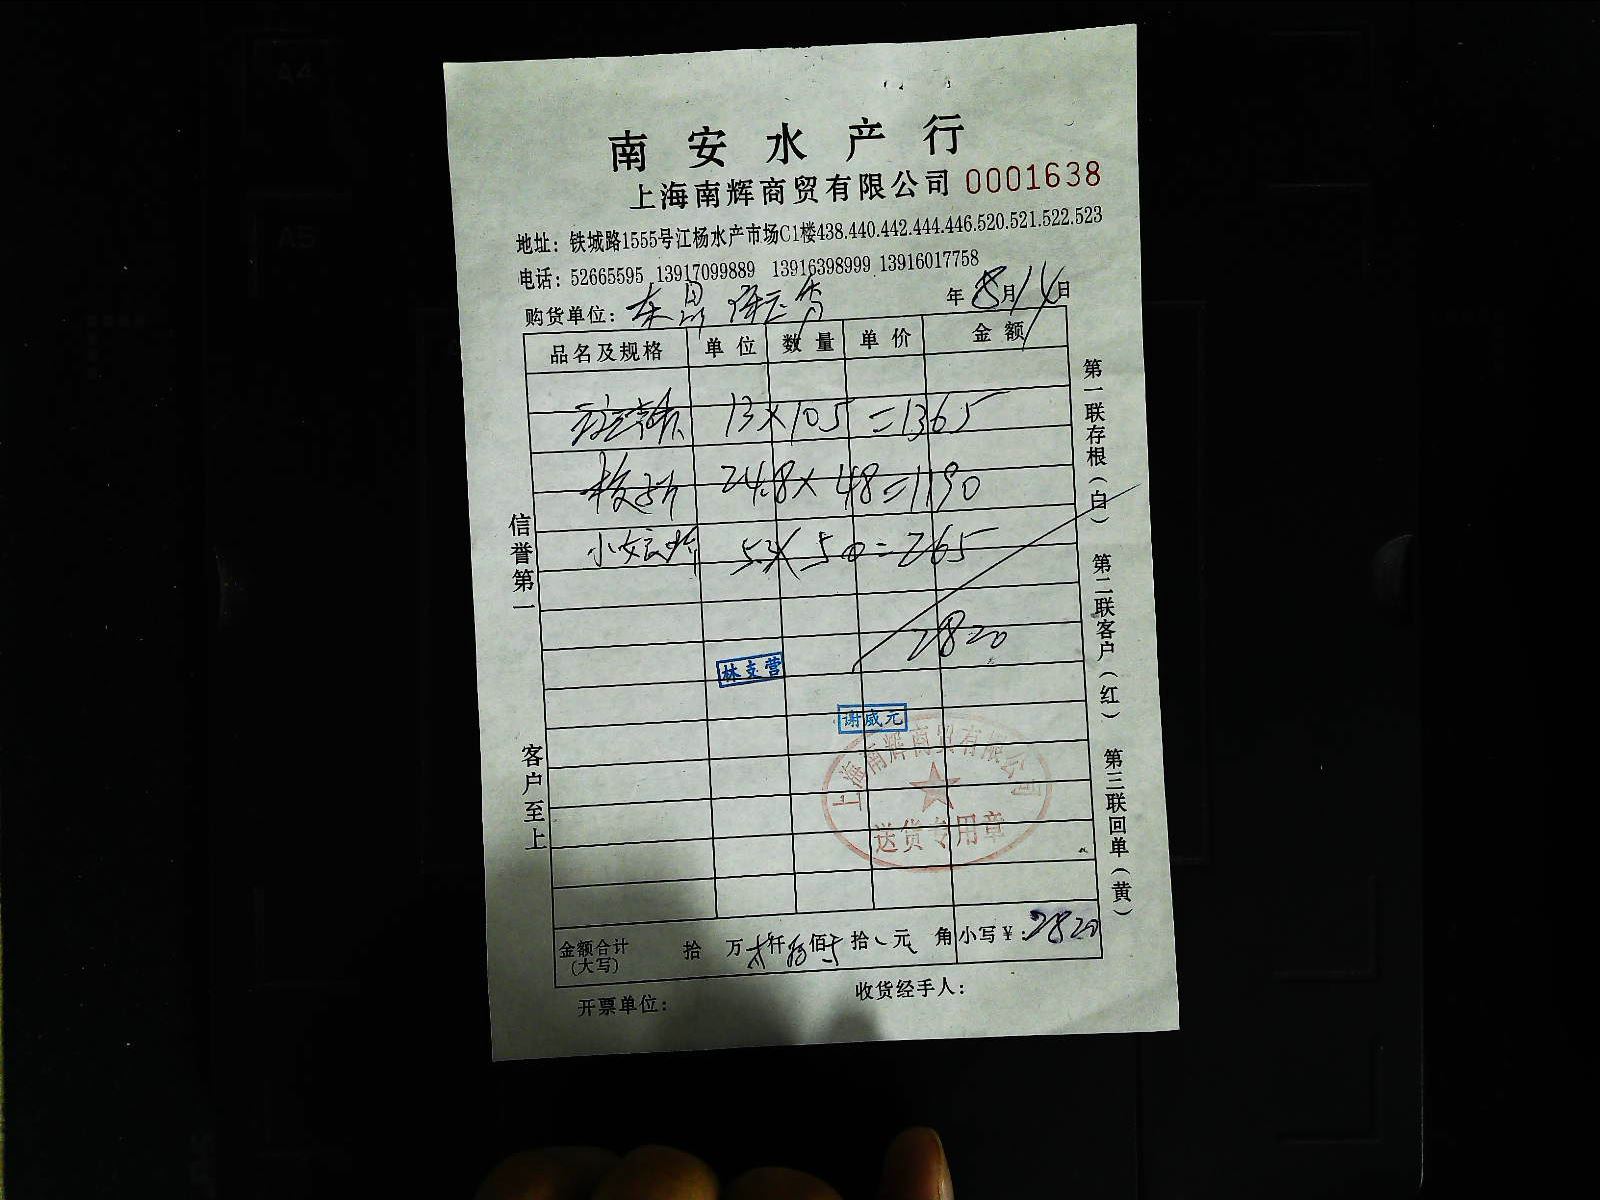 A4
A5
南安水产行
上海南辉商贸有限公司 0001638
地址：铁城路1555号江杨水产市场C1楼438.440.442.444.446.520.521.522.523
电话：52665595 13917099889 13916398999 13916017758
购货单位： 年 8月14日
品名及规格 单位 数量 单价 金额
13×105=1365
24.8×48=1190
小 5.3×50=265
2820
林支营
谢威元
上海南辉商贸有限公司
送货专用章
信誉第一
客户至上
第一联存根（白）
第二联客户（红）
第三联回单（黄）
金额合计（大写） 拾 万 仟 佰 拾 元 角 小写￥：2820
开票单位：
收货经手人：